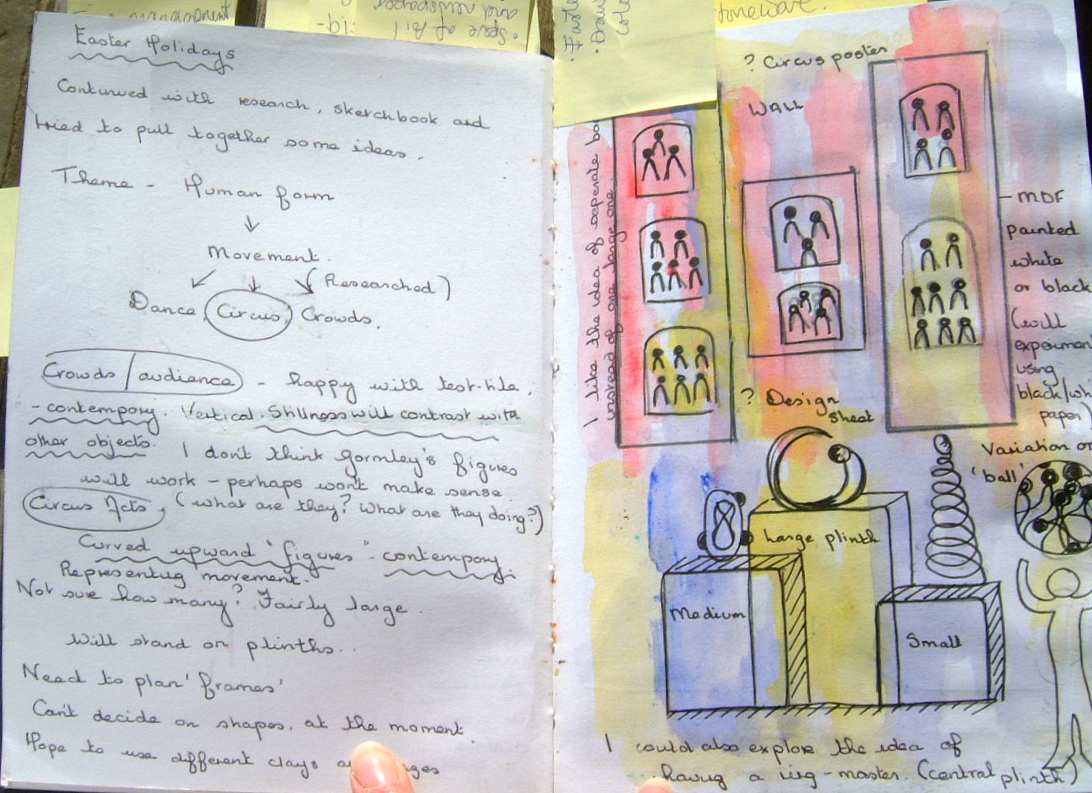 management
Spire of Oil
and newspaper
stoneware.
Easter Holidays
Continued with research, sketchbook and
tried to pull together some ideas.
Theme - Human form
Movement.
(Researched)
Dance Circus Crowds.
Crowds/audience - happy with test-tile.
- contempory. Vertical. Stillness will contrast with
other objects. I don't think Gormley's figures
will work - perhaps won't make sense.
Circus Acts, (what are they? What are they doing?)
Curved upward "figures" - contempory.
Representing movement.
Not sure how many? Fairly large.
Will stand on plinths..
Need to plan 'frames'
Can't decide on shapes. at the moment.
Hope to use different clays
? Circus poster
WALL
I like the idea of seperate
instead of one large one.
- MDF
painted
white
or black
(will
experiment
using
black/wh
paper)
? Design
sheet
Variation on
'ball'
Large plinth
Medium
Small
I could also explore the idea of
having a ring-master. (central plinth)